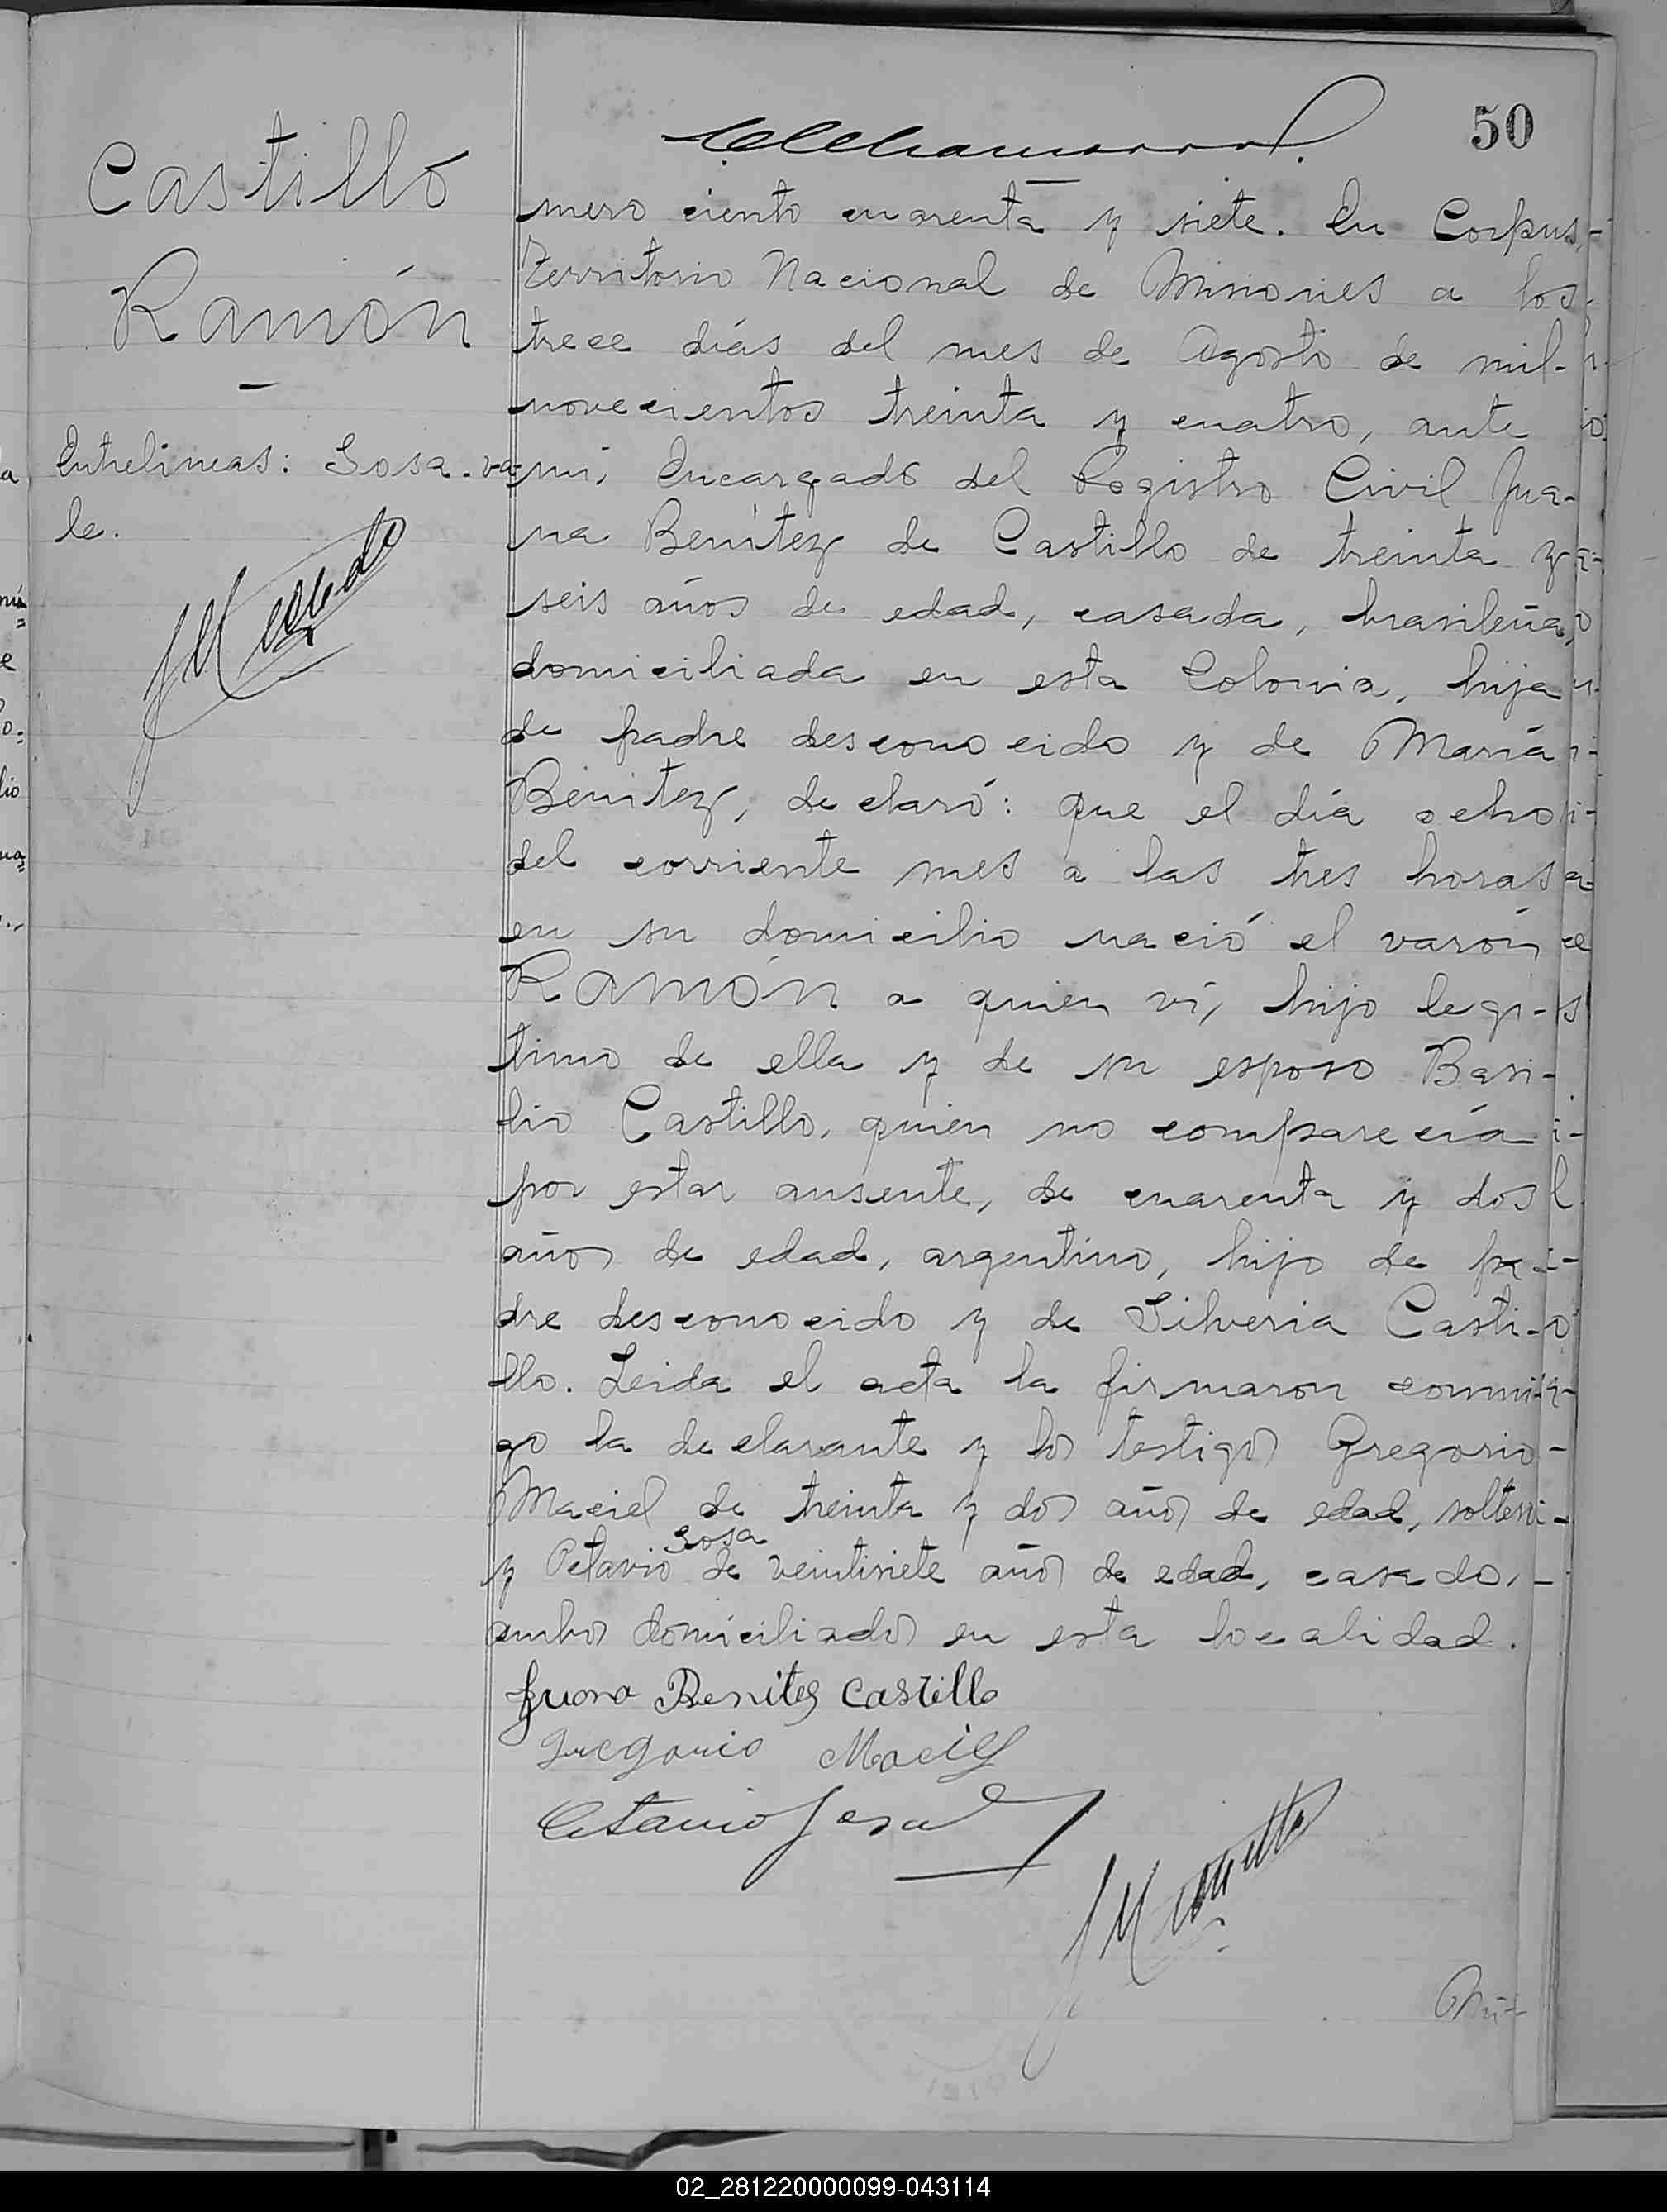 50
Castillo
Ramón
Entrelineas: Sosa. va-
le.
mero ciento cuarenta y siete. En Corpus,
Territorio Nacional de Misiones a los
trece días del mes de Agosto de mil-
novecientos treinta y cuatro, ante
mi, Encargado del Registro Civil Jua-
na Benítez de Castillo de treinta y
seis años de edad, casada, brasileña,
domiciliada en esta Colonia, hija
de padre desconocido y de María
Benitez, declaró: que el día ocho
del corriente mes a las tres horas
en su domicilio nació el varón
RAMÓN a quien ví, hijo legi-
timo de ella y de su esposo Basi-
lio Castillo, quien no comparecía
por estar ausente, de cuarenta y dos
años de edad, argentino, hijo de pa-
dre desconocido y de Silveria Casti-
llo. Leida el acta la firmaron conmi-
go la declarante y los testigos Gregorio
Maciel de treinta y dos años de edad, soltero
Sosa
y Octavio de veintisiete años de edad, casado,
ambos domiciliados en esta localidad.
Juana Benites Castillo
Gregorio Maciel
Octavio Sosa
02_281220000099-043114